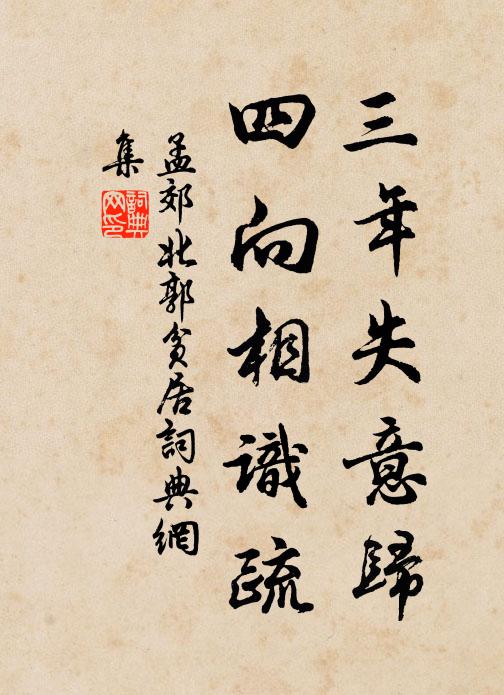 三年失意歸
四向相識疏
孟郊北郭貧居詞典網
集
詞典
网印